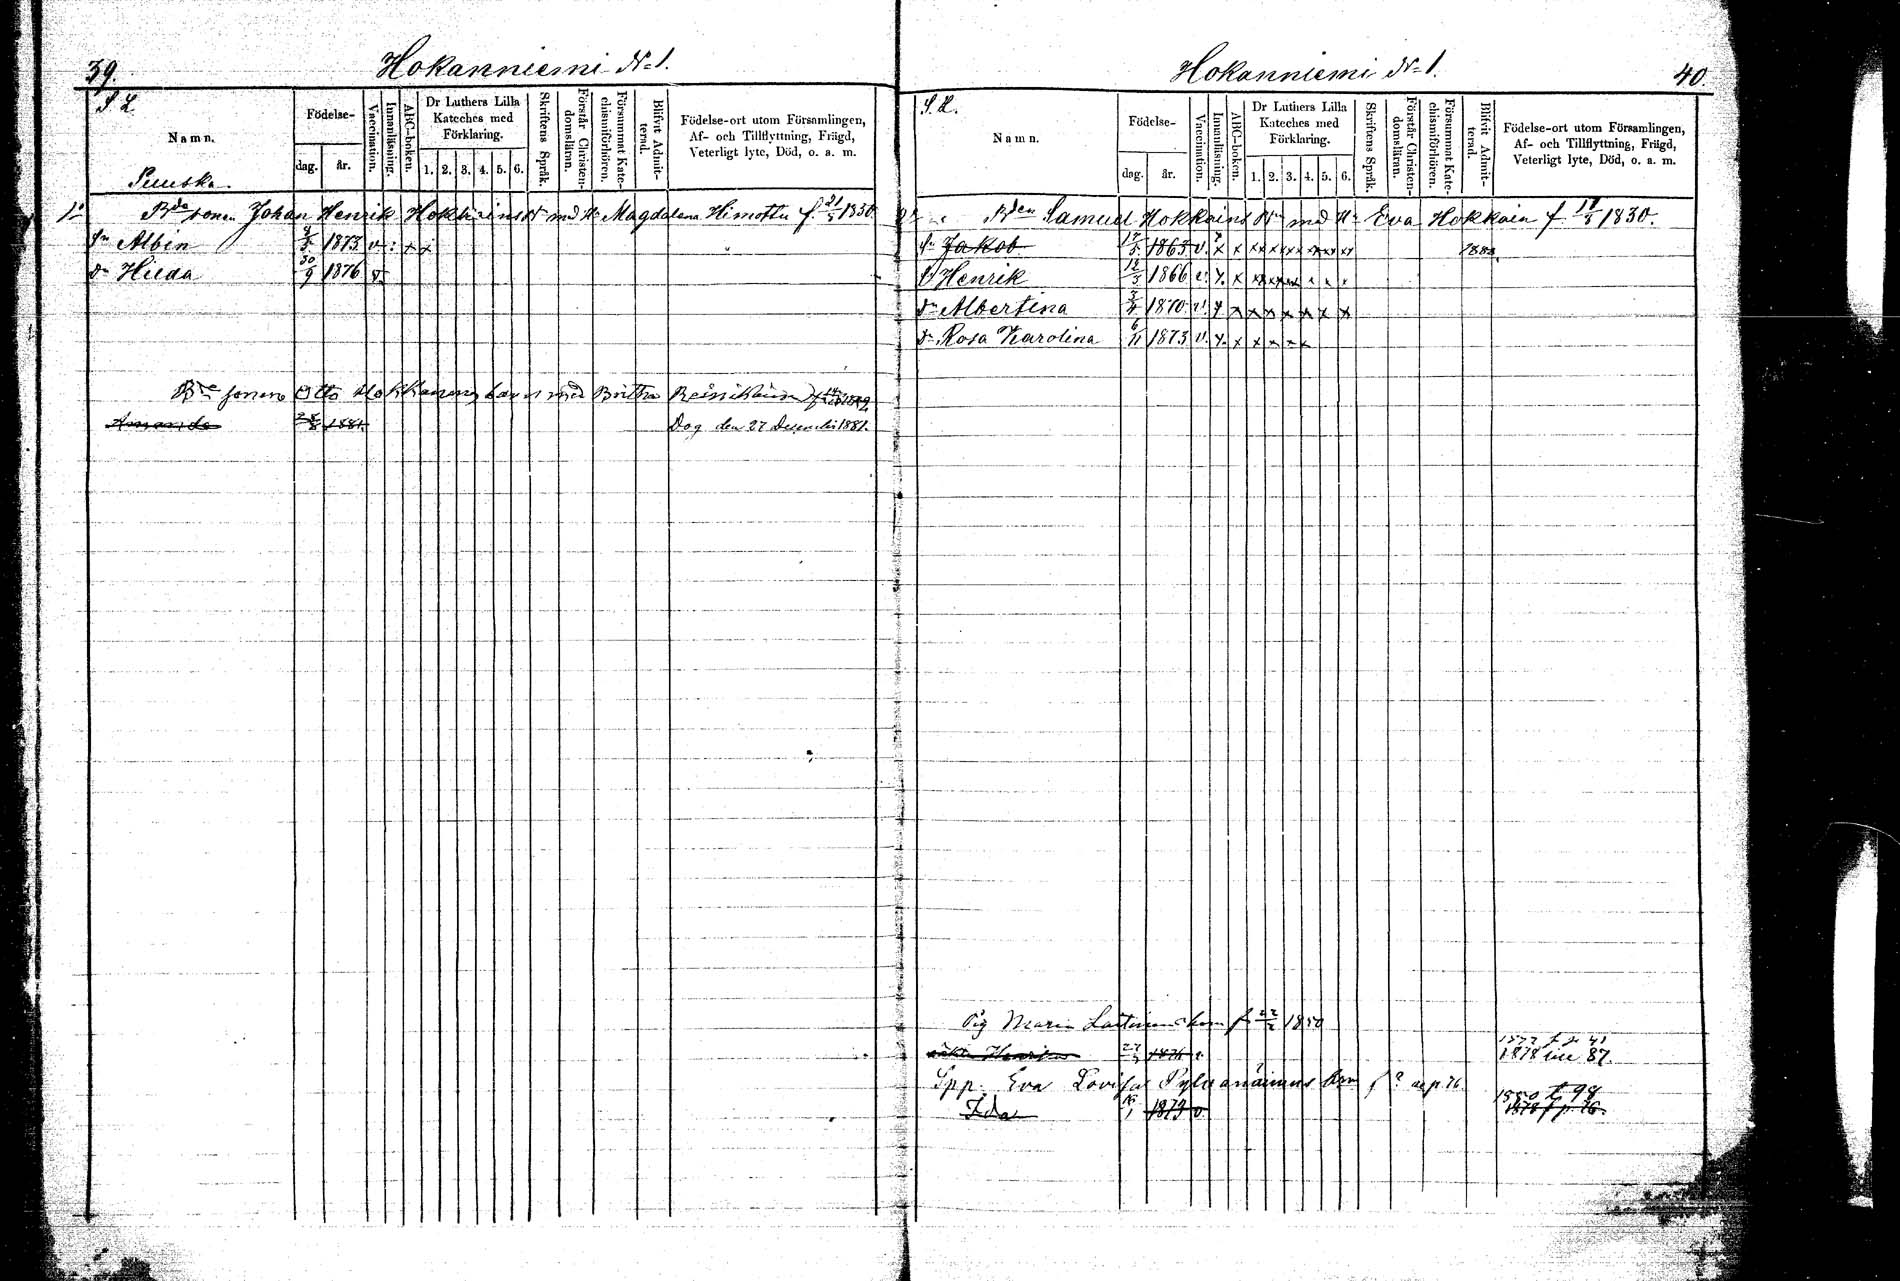 39.
Hokanniemi No 1.
S. L.
Namn.
Födelse-
dag.
år.
Vaccination.
Innanläsning.
ABC-boken.
Dr Luthers Lilla
Kateches med
Förklaring.
1. 2. 3. 4. 5. 6.
Skriftens Språk.
Förstår Christen-
domsläran.
Försummat Kate-
chismiförhören.
Blifvit Admit-
terad.
Födelse-ort utom Församlingen,
Af- och Tillflyttning, Frägd,
Veterligt lyte, Död, o. a. m.
1o Bde sonen Johan Henrik med Magdalena Himottu f. 21/5 1830.
Sn Albin 1873 v. x x
Dr Hilda 30/9 1876 v.
sonen Otto Hokkanens med Britha
Amanda 1881. Dog den 27 December 1881.
Hokanniemi No 1.
40.
S. L.
Namn.
Födelse-
dag.
år.
Vaccination.
Innanläsning.
ABC-boken.
Dr Luthers Lilla
Kateches med
Förklaring.
1. 2. 3. 4. 5. 6.
Skriftens Språk.
Förstår Christen-
domsläran.
Försummat Kate-
chismiförhören.
Blifvit Admit-
terad.
Födelse-ort utom Församlingen,
Af- och Tillflyttning, Frägd,
Veterligt lyte, Död, o. a. m.
Bden Samuel Hokkains med Eva Hokkain f. 11/5 1830.
Sn Jakob 1863 v. x x xx xx xx xx xx xx 1883
S. Henrik 12/5 1866 v. x. x
Dr Albertina 1870 v. x x x x x x x x
Dr Rosa Karolina 6/11 1873 v. x. x x x x
Pig Maria f. 22/2 1850
1877 f p 41
1878 87.
Spp. Eva Lovisa f ? 76
1880 t 98
Ida 1873 v. 1878 f p 76.